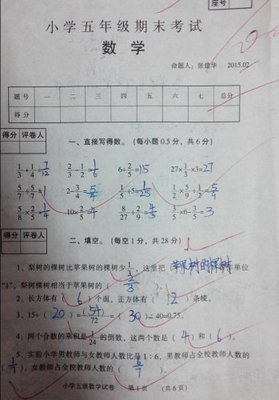 座号
小学五年级期末考试
数学
命题人：张建华 2015.02
题号 一 二 三 四 五 六 七 总分
得分
得分 评卷人
一、直接写得数。（每小题0.5分，共6分）
1/3+1/4=7/12 2/3-1/2=1/6 6÷2/5=15 27×1/3×3=27
5/7÷5/7=1 2-3/4=5/4
5/8×2/5=1/4 10×2/5=4
得分 评卷人
二、填空。（每空1分，共28分）
1、梨树的棵树比苹果树的棵树少1/3，这里把（苹果树的棵树）看作单位
"1"，梨树棵树相当于苹果树的
2、长方体有（6）个面，正方体有（12）条棱。
3、15÷（20）=（54）/72=（30）:40=0.75。
4、两个合数的乘积是1/24的倒数，这两个数是（4）和（6）。
5、实验小学男教师与女教师人数比是1:6，男教师占全校教师人数的
（1/7），女教师占全校教师人数的（6/7）。
小学五级数学试卷 第1页 （共6页）